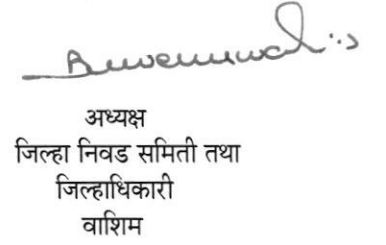 अध्यक्ष
जिल्हा निवड समिती तथा
जिल्हाधिकारी
वाशिम